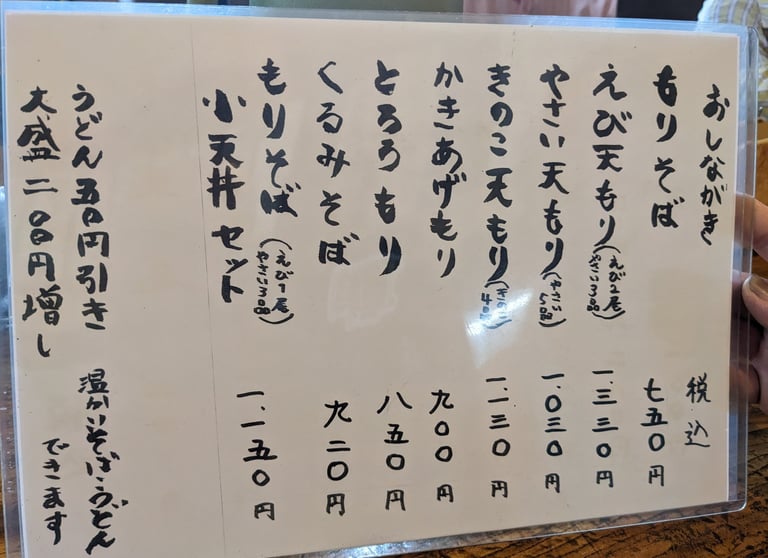 おしながき
税込
もりそば 七五〇円
えび天もり(えび2尾 やさい3品) 一.三三〇円
やさい天もり(やさい5品) 一.〇三〇円
きのこ天もり(きのこ4品) 一.一三〇円
かきあげもり 九〇〇円
とろろもり 八五〇円
くるみそば 九二〇円
もりそば(えび1尾 やさい3品)
小天丼セット 一.一五〇円
うどん五〇円引き
大盛二〇〇円増し
温かいそば・うどん
できます